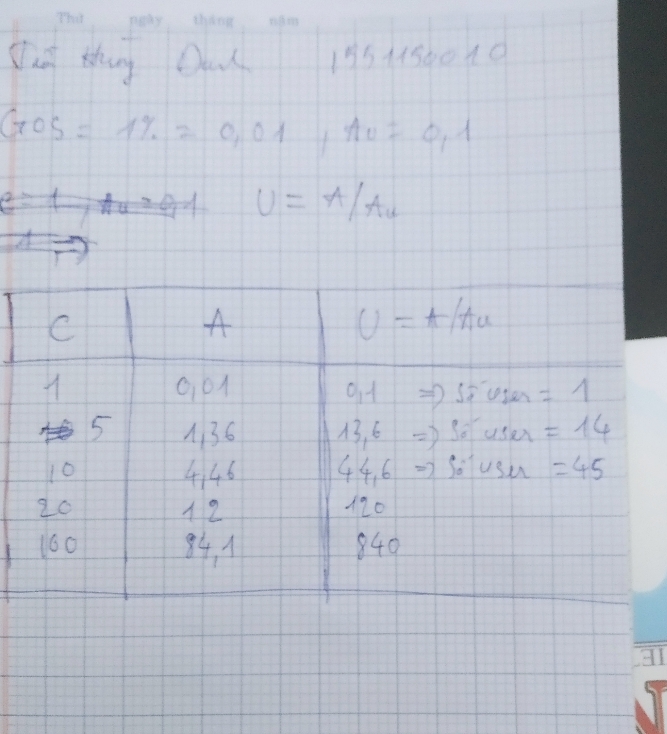 Thứ ngày tháng năm
Hưng Danh 1951150010
GOS = 1% = 0,01 , Au = 0,1
c = 1 , Au = 0,1 U = A/Au
C A U = A/Au
1 0,01 0,1 => Số user = 1
5 1,36 13,6 => Số user = 14
10 4,46 44,6 => Số user = 45
20 12 120
100 84,1 840